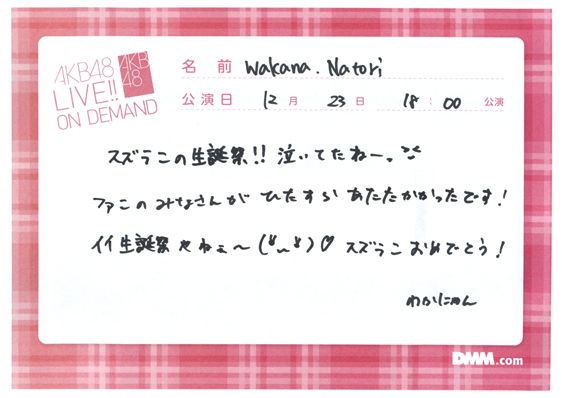 AKB48
LIVE!!
ON DEMAND
AKB
48
名前 Wakana. Natori
公演日 12月 23日 18:00 公演
スズランの生誕祭!! 泣いてたねー。
ファンのみなさんが ひたすら あたたかかったです!
イイ生誕祭やねぇ〜 ♡ スズラン おめでとう!
わかにゃん
DMM.com